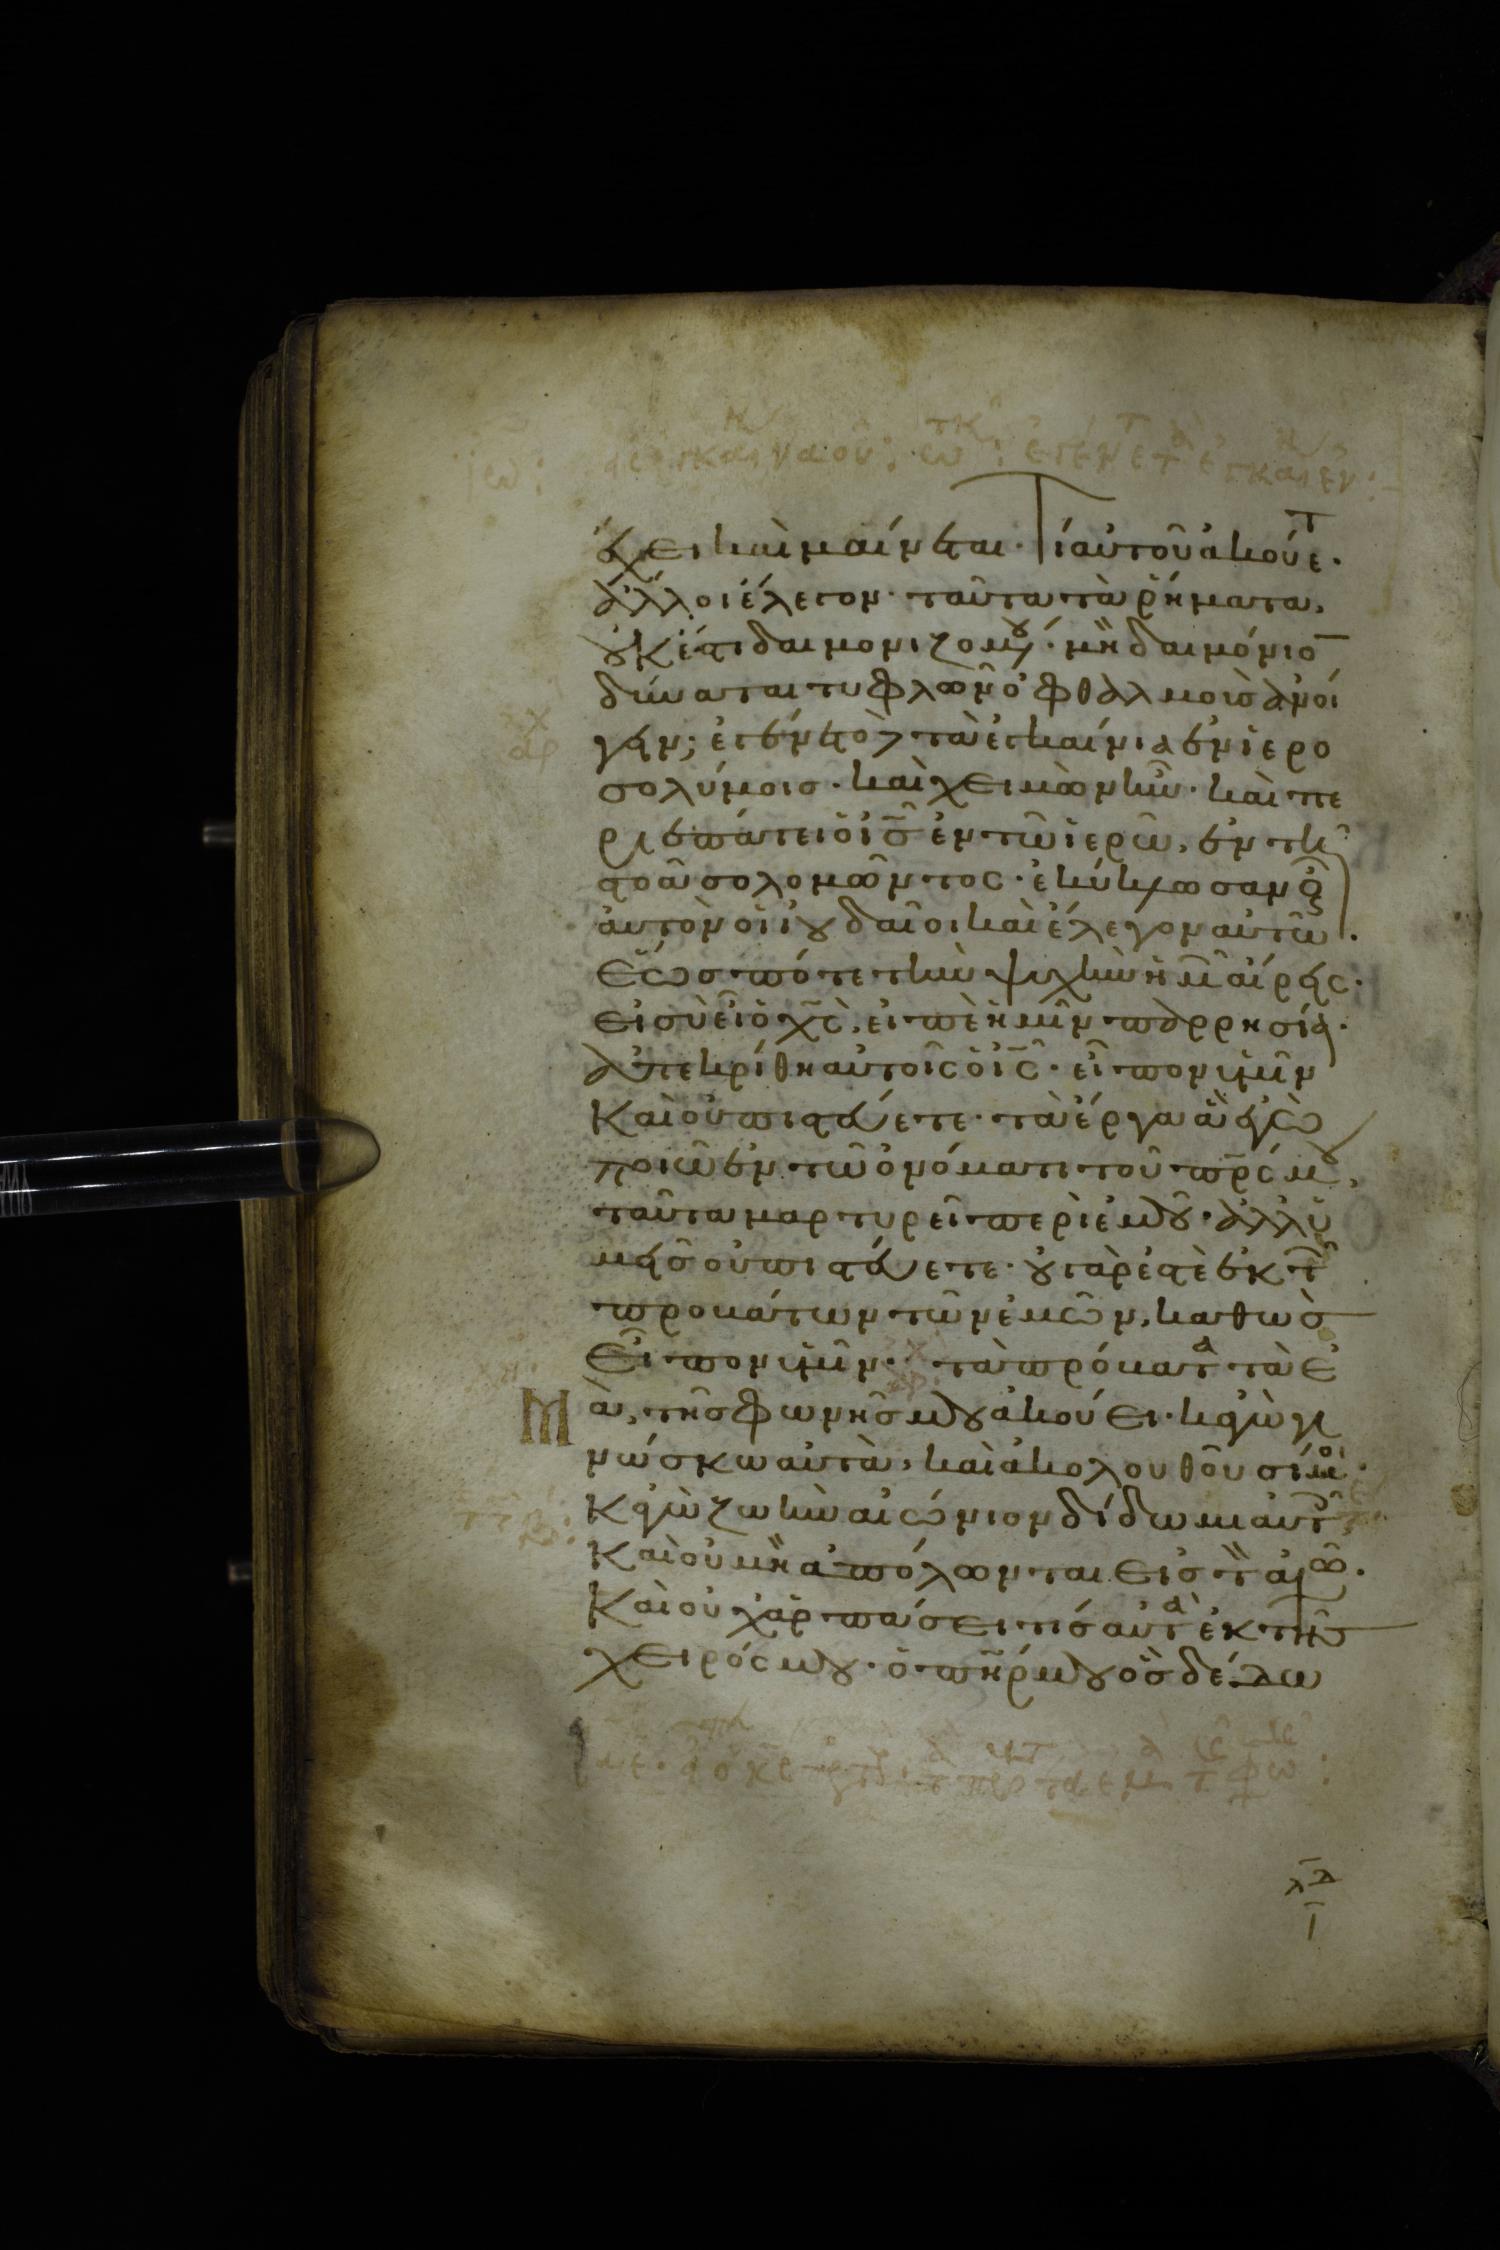 ἔχει καὶ μαίνεται· Τί αὐτοῦ ἀκούετ·
ἄλλοι ἔλεγον· ταῦτα τὰ ῥήματα,
οὐκ ἔστι δαιμονιζομου· μὴ δαιμόνιο
δύναται τυφλῶν ὀφθαλμοὶς ἀνοί
γειν; ἐγένετο τὰ ἐγκαίνια ἐν ἱερο
σολύμοις· καὶ χειμὼν ἦν· καὶ πε
ριεπάτει ὁ ις ἐν τῷ ἱερῷ, ἐν τῆ
στοᾶ σολομῶντος· ἐκύκλωσαν οὖ
αὐτὸν οἱ ἰουδαῖοι καὶ ἔλεγον αὐτῶ·
ἕως πότε τὴν ψυχὴν ἡμ αἴρεις·
εἰ σὺ εἶ ὁ χς, εἰπὲ ἡμῖν παρρησία·
ἀπεκρίθη αὐτοῖς ὁ ις· εἶπον ὑμῖν
καὶ οὐ πιστεύετε· τὰ ἔργα ἃ ἐγὼ
ποιῶ ἐν τῶ ὀνόματι τοῦ πρς μου,
ταῦτα μαρτυρεῖ περὶ ἐμοῦ· ἀλλ ὑ
μεῖς οὐ πιστεύετε· οὐ γὰρ ἐστὲ ἐκ τ
προβάτων τῶν ἐμῶν, καθὼς
εἶπον ὑμῖν· τὰ πρόβατα τὰ ἐ
Μὰ, τῆς φωνῆς μου ἀκούει· κἀγὼ γι
νώσκω αὐτὰ, καὶ ἀκολουθοῦσί μοι·
κἀγὼ ζωὴν αἰώνιον δίδωμι αὐτ,
καὶ οὐ μὴ ἀπόλωνται εἰς τ αἰω·
καὶ οὐχ ἁρπάσει τίς αὐτὰ ἐκ τῆς
χειρός μου· ὁ πηρ μου ὃς δέδω